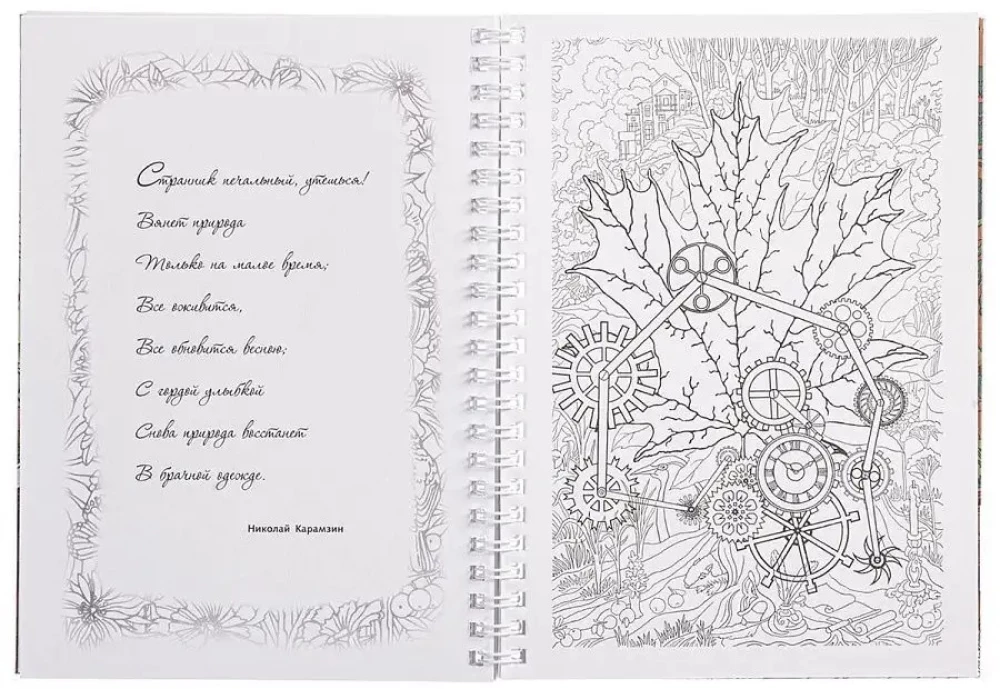 Странник печальный, утешься!
Вянет природа
Только на малое время;
Все оживится,
Все обновится весною;
С гордой улыбкой
Снова природа восстанет
В брачной одежде.
Николай Карамзин